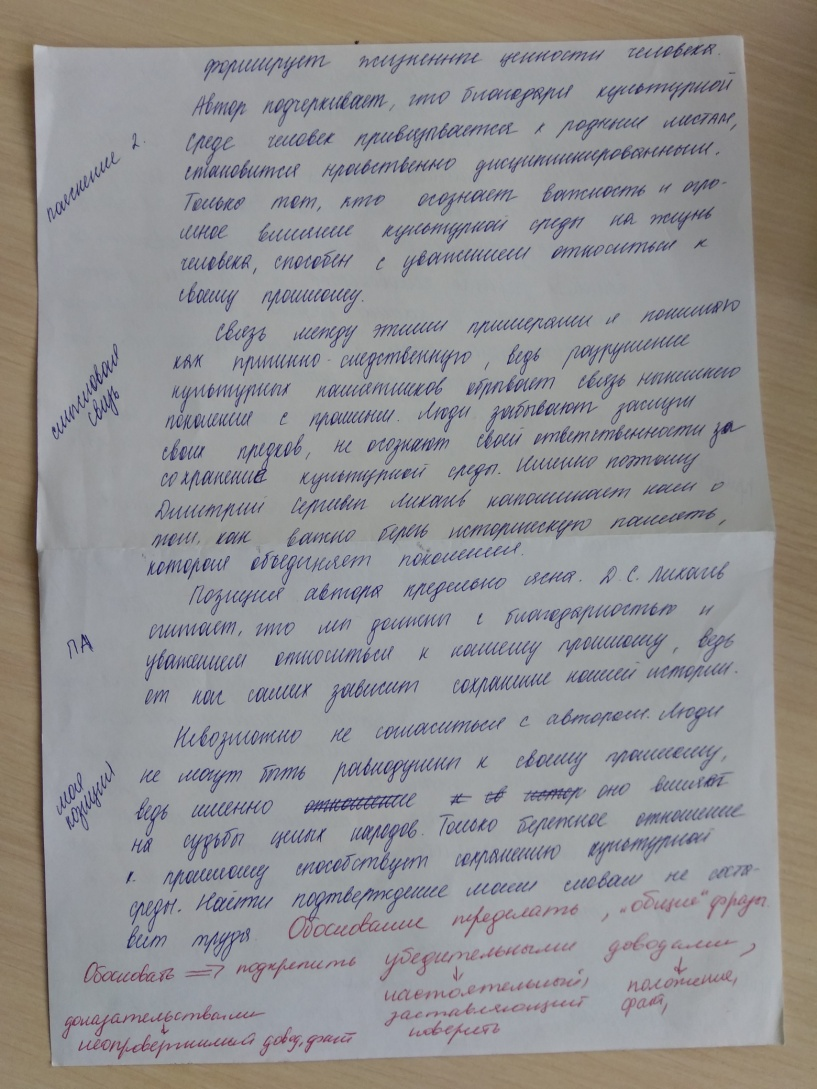 формирует жизненные ценности человека.
Автор подчеркивает, что благодаря культурной
пояснение 2.
среде человек привязывается к родным местам,
становится нравственно дисциплинированным.
Только тот, кто осознает важность и огро-
мное влияние культурной среды на жизнь
человека, способен с уважением относиться к
своему прошлому.
Связь между этими примерами я понимаю
смысловая
связь
как причинно-следственную, ведь разрушение
культурных памятников обрывает связь нынешнего
поколения с прошлым. Люди забывают заслуги
своих предков, не осознают своей ответственности за
сохранение культурной среды. Именно поэтому
Дмитрий Сергеевич Лихачев напоминает нам о
том, как важно беречь историческую память,
которая объединяет поколения.
Позиция автора предельно ясна. Д.С. Лихачев
ПА
считает, что мы должны с благодарностью и
уважением относиться к нашему прошлому, ведь
от нас самих зависит сохранение нашей истории.
Невозможно не согласиться с автором. Люди
моя
позиция
не могут быть равнодушны к своему прошлому,
ведь именно отношение к св истор оно влияет
на судьбы целых народов. Только бережное отношение
к прошлому способствует сохранению культурной
среды. Найти подтверждение моим словам не соста-
вит труда. Обоснование переделать, "общие" фразы
Обосновать => подкрепить убедительными доводами,
доказательствами
настоятельный, положение,
неопровержимый довод, факт
заставляющий факт,
поверить